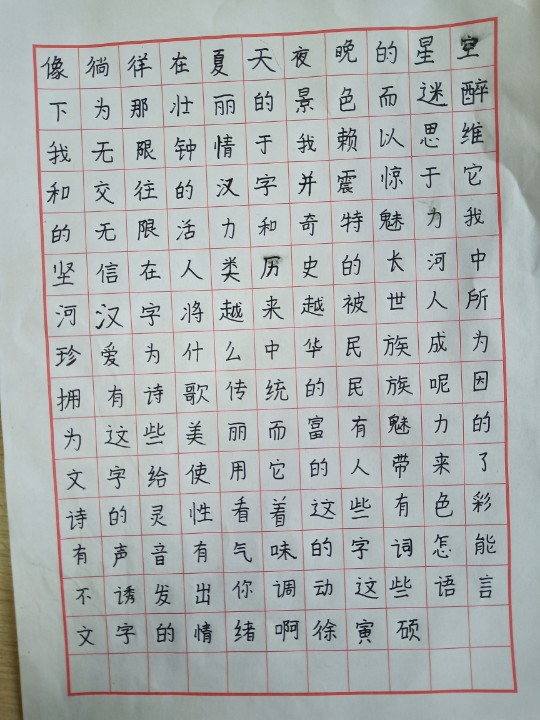 像徜徉在夏天夜晚的星空
下为那壮丽的景色而迷醉
我无限钟情于我赖以思维
和交往的汉字并震惊于它
的无限活力和奇特魅力我
坚信在人类历史的长河中
河汉字将越来越被世人所
珍爱为什么中华民族成为
拥有诗歌传统的民族呢因
为这些美丽而富有魅力的
文字给使用它的人带来了
诗的灵性看着这些有色彩
有声音有气味的字词怎能
不诱发出你调动这些语言
文字的情绪啊徐寅硕